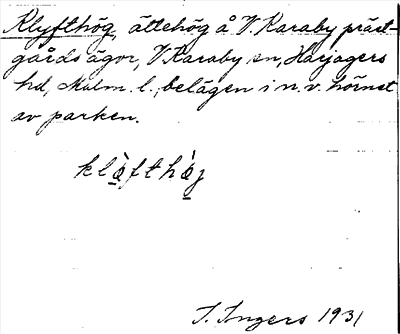 Klyfthög, ättehög å V. Karaby präst-
gårds ägor, V Karaby sn, Harjagers
hd, Malm. l., belägen i n. v. hörnet
av parken.
klæ̀fthæ̀j
I. Ingers 1931